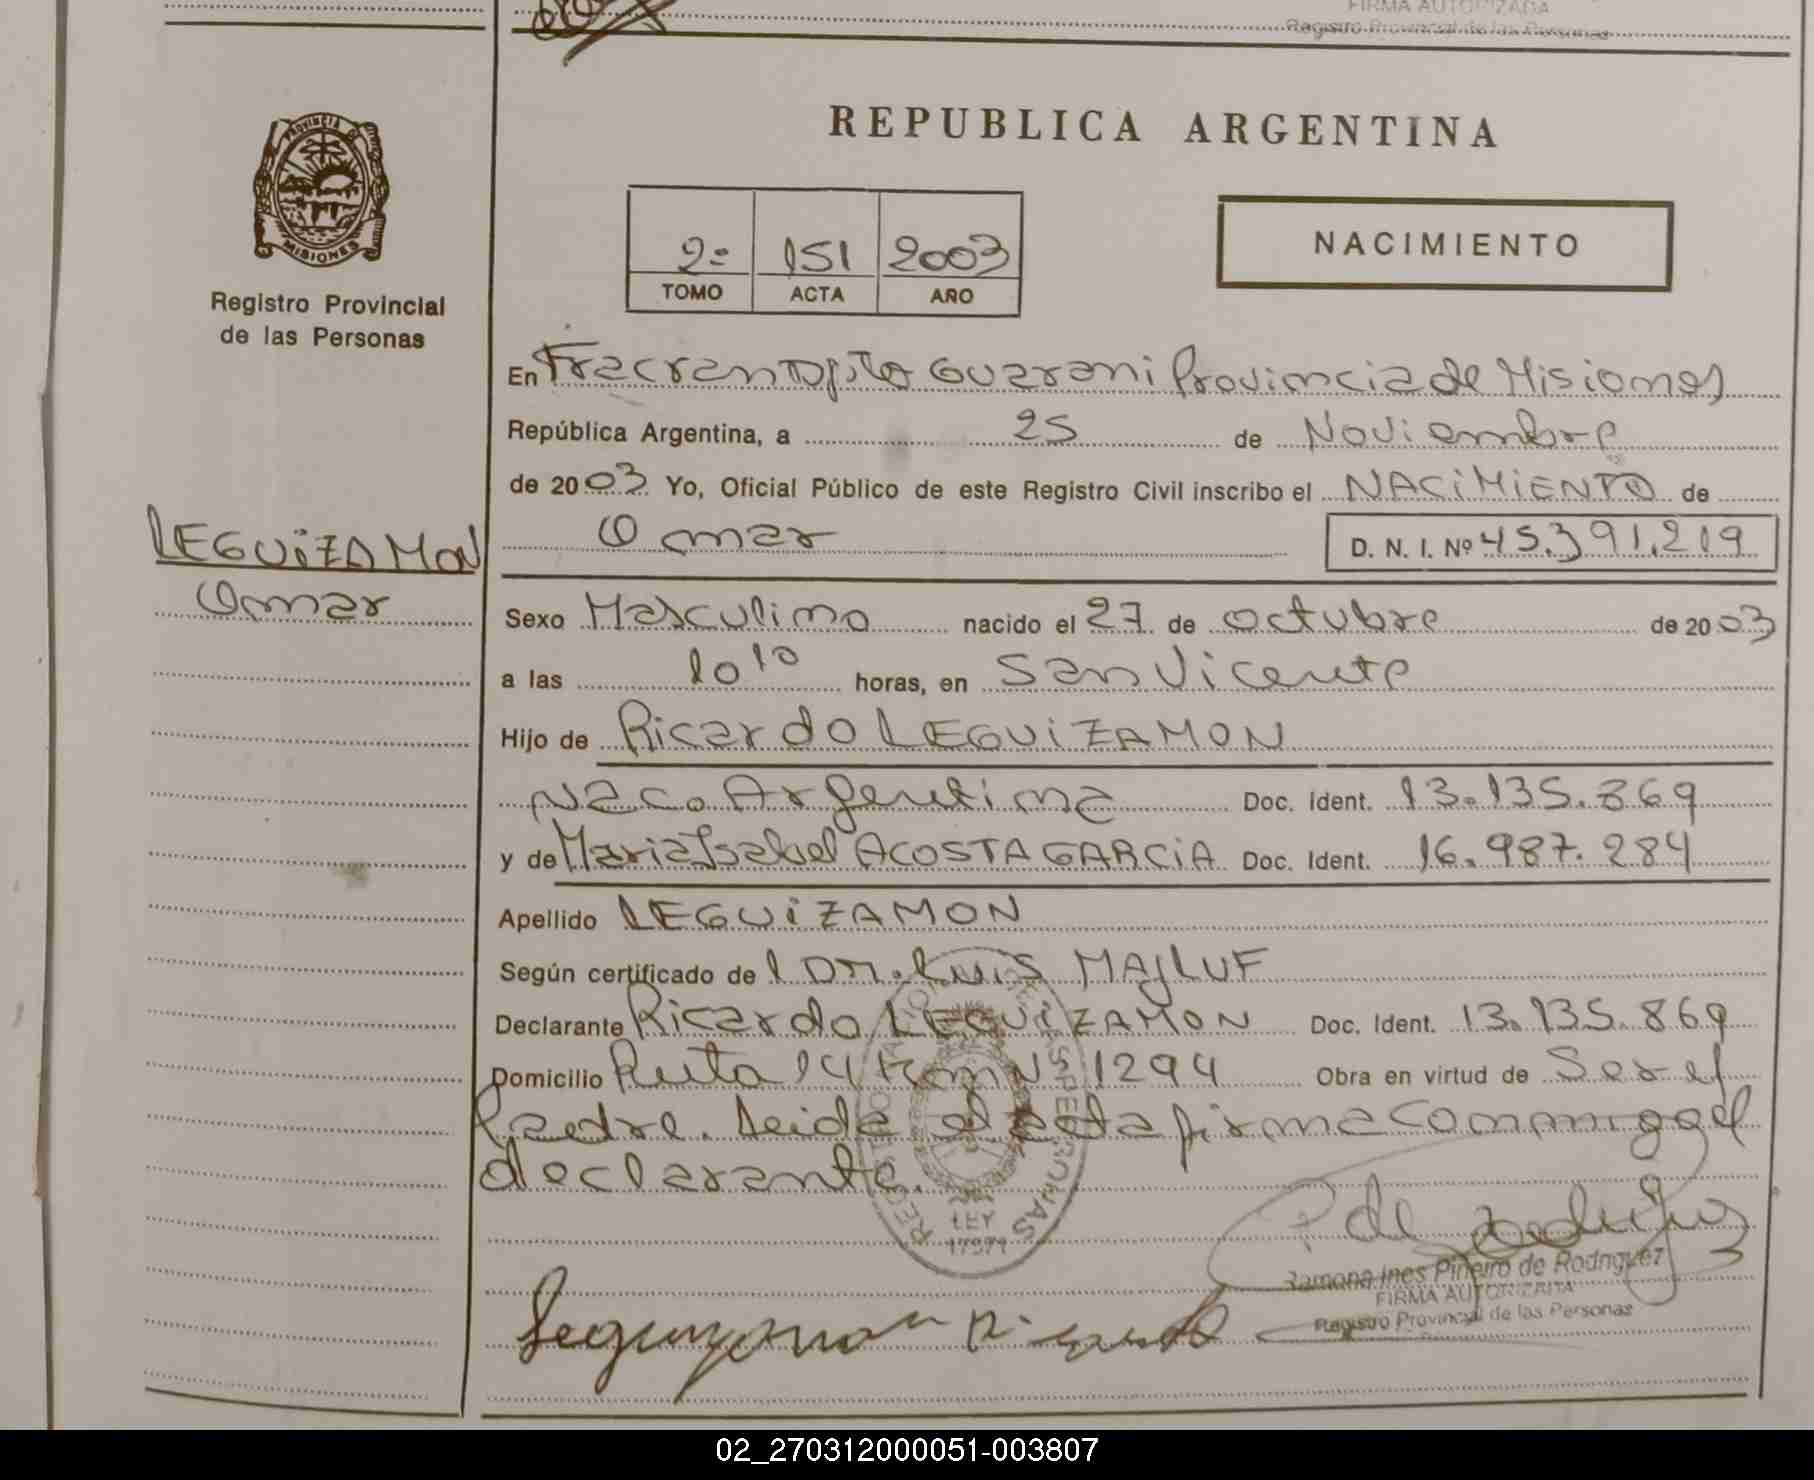 FIRMA AUTORIZADA
Registro Provincial de las Personas
PROVINCIA DE
MISIONES
Registro Provincial
de las Personas
REPUBLICA ARGENTINA
2º 151 2003
TOMO ACTA AÑO
NACIMIENTO
En Fracran Dpto Guarani Provincia de Misiones
República Argentina, a 25 de Noviembre
de 2003 Yo, Oficial Público de este Registro Civil inscribo el NACIMIENTO de
Omar D. N. I. Nº 45.391.219
LEGUIZAMON
Omar
Sexo Masculino nacido el 27 de octubre de 2003
a las 10 10 horas, en San Vicente
Hijo de Ricardo LEGUIZAMON
Nac. Argentina Doc. Ident. 13.135.869
y de Maria Isabel ACOSTA GARCIA Doc. Ident. 16.987.284
Apellido LEGUIZAMON
Según certificado del DR. LUIS MAJLUF
Declarante Ricardo LEGUIZAMON Doc. Ident. 13.135.869
Domicilio Ruta 14 Km Nº 1294 Obra en virtud de Ser el
Padre. Leida el acta firma conmigo el
declarante.
LEY
17671
Ramona Ines Piñeiro de Rodriguez
FIRMA AUTORIZADA
Registro Provincial de las Personas
Leguizamon Ricardo
02_270312000051-003807